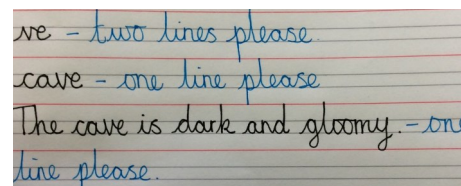 ve - two lines please.
cave - one line please
The cave is dark and gloomy. - one
line please.